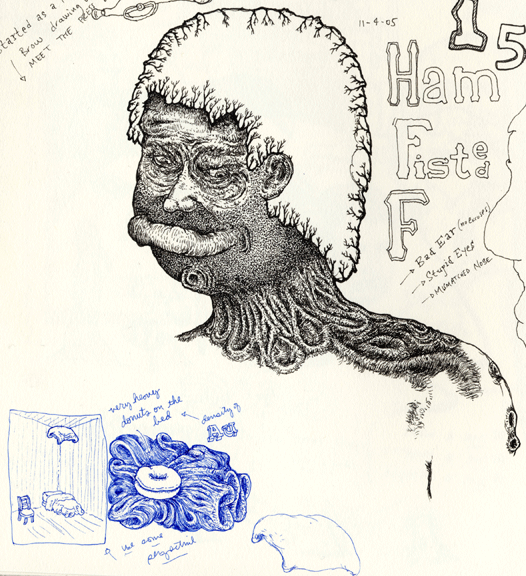 started as a
Brow drawing
MEET THE PRESS
11-4-05
15
Ham
Fisted
F
→ Bad Ear
→ Stupid Eyes
→ Mismatched Nose
very heavy
donuts on the
bed
density of
use some
perspective